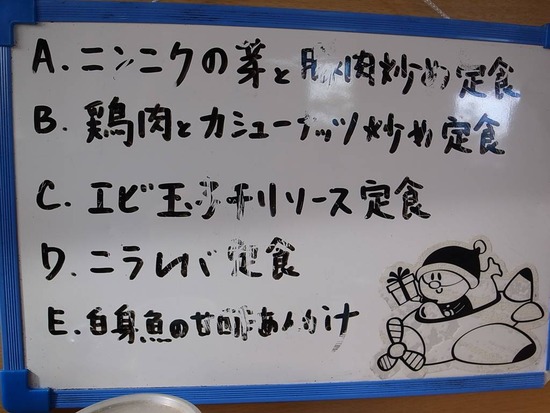 A. ニンニクの芽と豚肉炒め定食
B. 鶏肉とカシューナッツ炒め定食
C. エビ玉子チリソース定食
D. ニラレバ定食
E. 白身魚の甘酢あんかけ